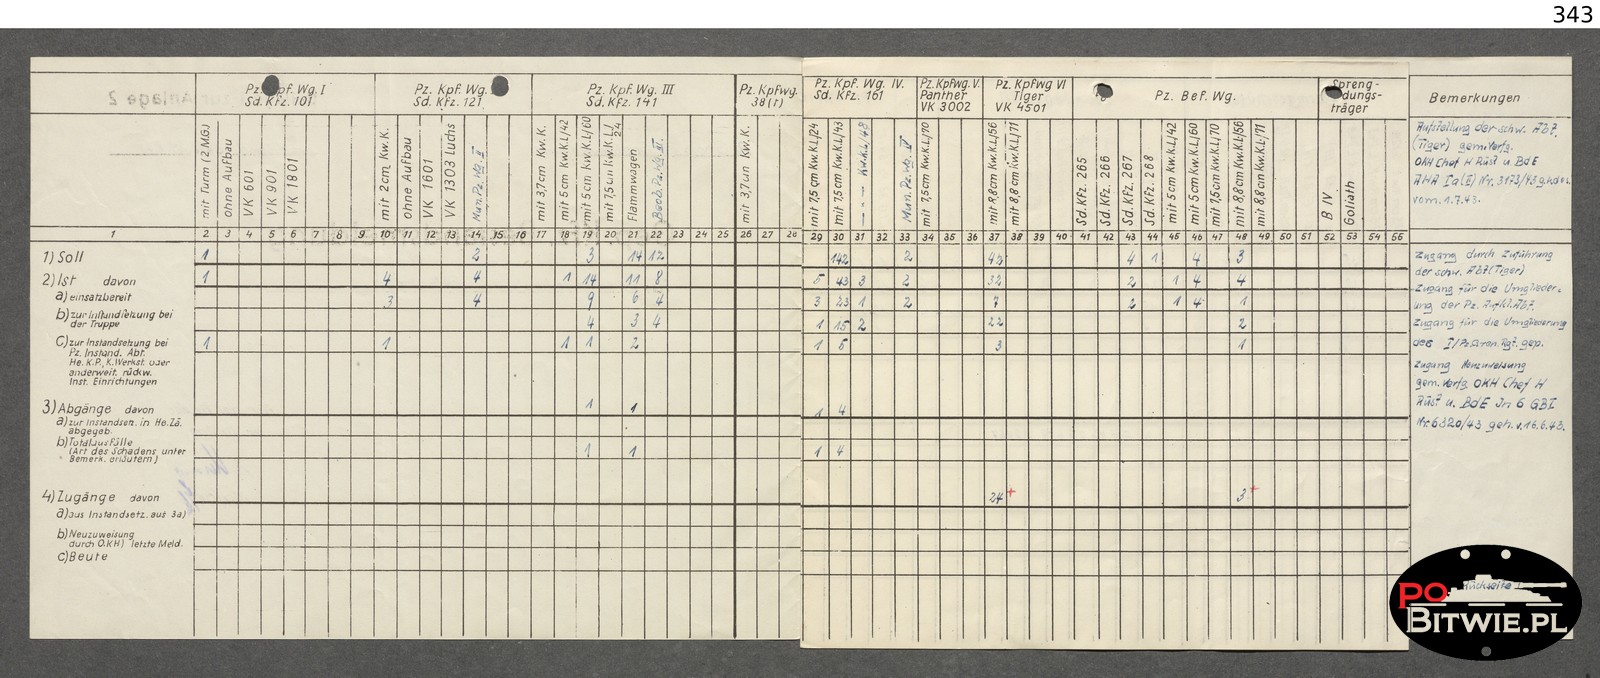 343
Pz. Kpf. Wg. I
Sd. Kfz. 101
Pz. Kpf. Wg.
Sd. Kfz. 121
Pz. Kpf. Wg. III
Sd. Kfz. 141
Pz. Kpfwg.
38(t)
Pz. Kpf. Wg. IV.
Sd. Kfz. 161
Pz. Kpfwg. V.
Panther
VK 3002
Pz. Kpfwg VI
Tiger
VK 4501
Pz. Bef. Wg.
Spreng-
dungs-
träger
Bemerkungen
mit Turm (2 M.G.)
ohne Aufbau
VK 601
VK 901
VK 1801
mit 2 cm Kw. K.
ohne Aufbau
VK 1601
VK 1303 Luchs
Mun. Pz. Wg. II
mit 3,7 cm Kw. K.
mit 5 cm Kw.K.L/42
mit 5 cm Kw.K.L/60
mit 7,5 cm Kw.K.L/24
Flammwagen
Beob. Pz. Wg. III.
mit 3,7 cm Kw. K.
mit 7,5 cm Kw.K.L/24
mit 7,5 cm Kw.K.L/43
" " " Kw.K.L/48
Mun. Pz. Wg. IV
mit 7,5 cm Kw.K.L/70
mit 8,8 cm Kw.K.L/56
mit 8,8 cm Kw.K.L/71
Sd. Kfz. 265
Sd. Kfz. 266
Sd. Kfz. 267
Sd. Kfz. 268
mit 5 cm Kw.K.L/42
mit 5 cm Kw.K.L/60
mit 7,5 cm Kw.K.L/70
mit 8,8 cm Kw.K.L/56
mit 8,8 cm Kw.K.L/71
B IV
Goliath
Aufstellung der schw. Abt.
(Tiger) gem. Verfg.
OKH Chef H Rüst u BdE
AHA Ia(E) Nr. 3173/43 g.Kdos.
vom. 1.7.43.
1 2 3 4 5 6 7 8 9 10 11 12 13 14 15 16 17 18 19 20 21 22 23 24 25 26 27 28 29 30 31 32 33 34 35 36 37 38 39 40 41 42 43 44 45 46 47 48 49 50 51 52 53 54 55
1) Soll 1 2 3 14 12 142 2 45 4 1 4 3
2) Ist davon 1 4 4 1 14 11 8 5 43 3 2 32 2 1 4 4
a) einsatzbereit 3 4 9 6 4 3 23 1 2 7 2 1 4 1
b) zur Instandsetzung bei
der Truppe 4 3 4 1 15 2 22 2
c) zur Instandsetzung bei 1 1 1 1 2 1 5 3 1
Pz. Instand. Abt.
He. K.P., K. Werkst. oder
anderweit. rückw.
Inst. Einrichtungen
3) Abgänge davon 1 1 1 4
a) zur Instandsetz. in He. Zä.
abgegeb.
b) Totalausfälle
(Art des Schadens unter 1 1 1 4
Bemerk. erläutern)
4) Zugänge davon 24 + 3 +
a) aus Instandsetz. auf 3a)
b) Neuzuweisung
durch O.K.H.) letzte Meld.
c) Beute
Zugang durch Zuführung
der schw. Abt (Tiger)
Zugang für die Umglieder-
ung der Pz. Aufkl. Abt.
Zugang für die Umgliederung
des I/Pz. Gren. Rgt. gep.
Zugang Neuzuweisung
gem. Verfg OKH Chef H
Rüst u. BdE Jn 6 GBI
Nr. 6320/43 geh. v. 16.6.43.
Rückseite
PO
BITWIE.PL